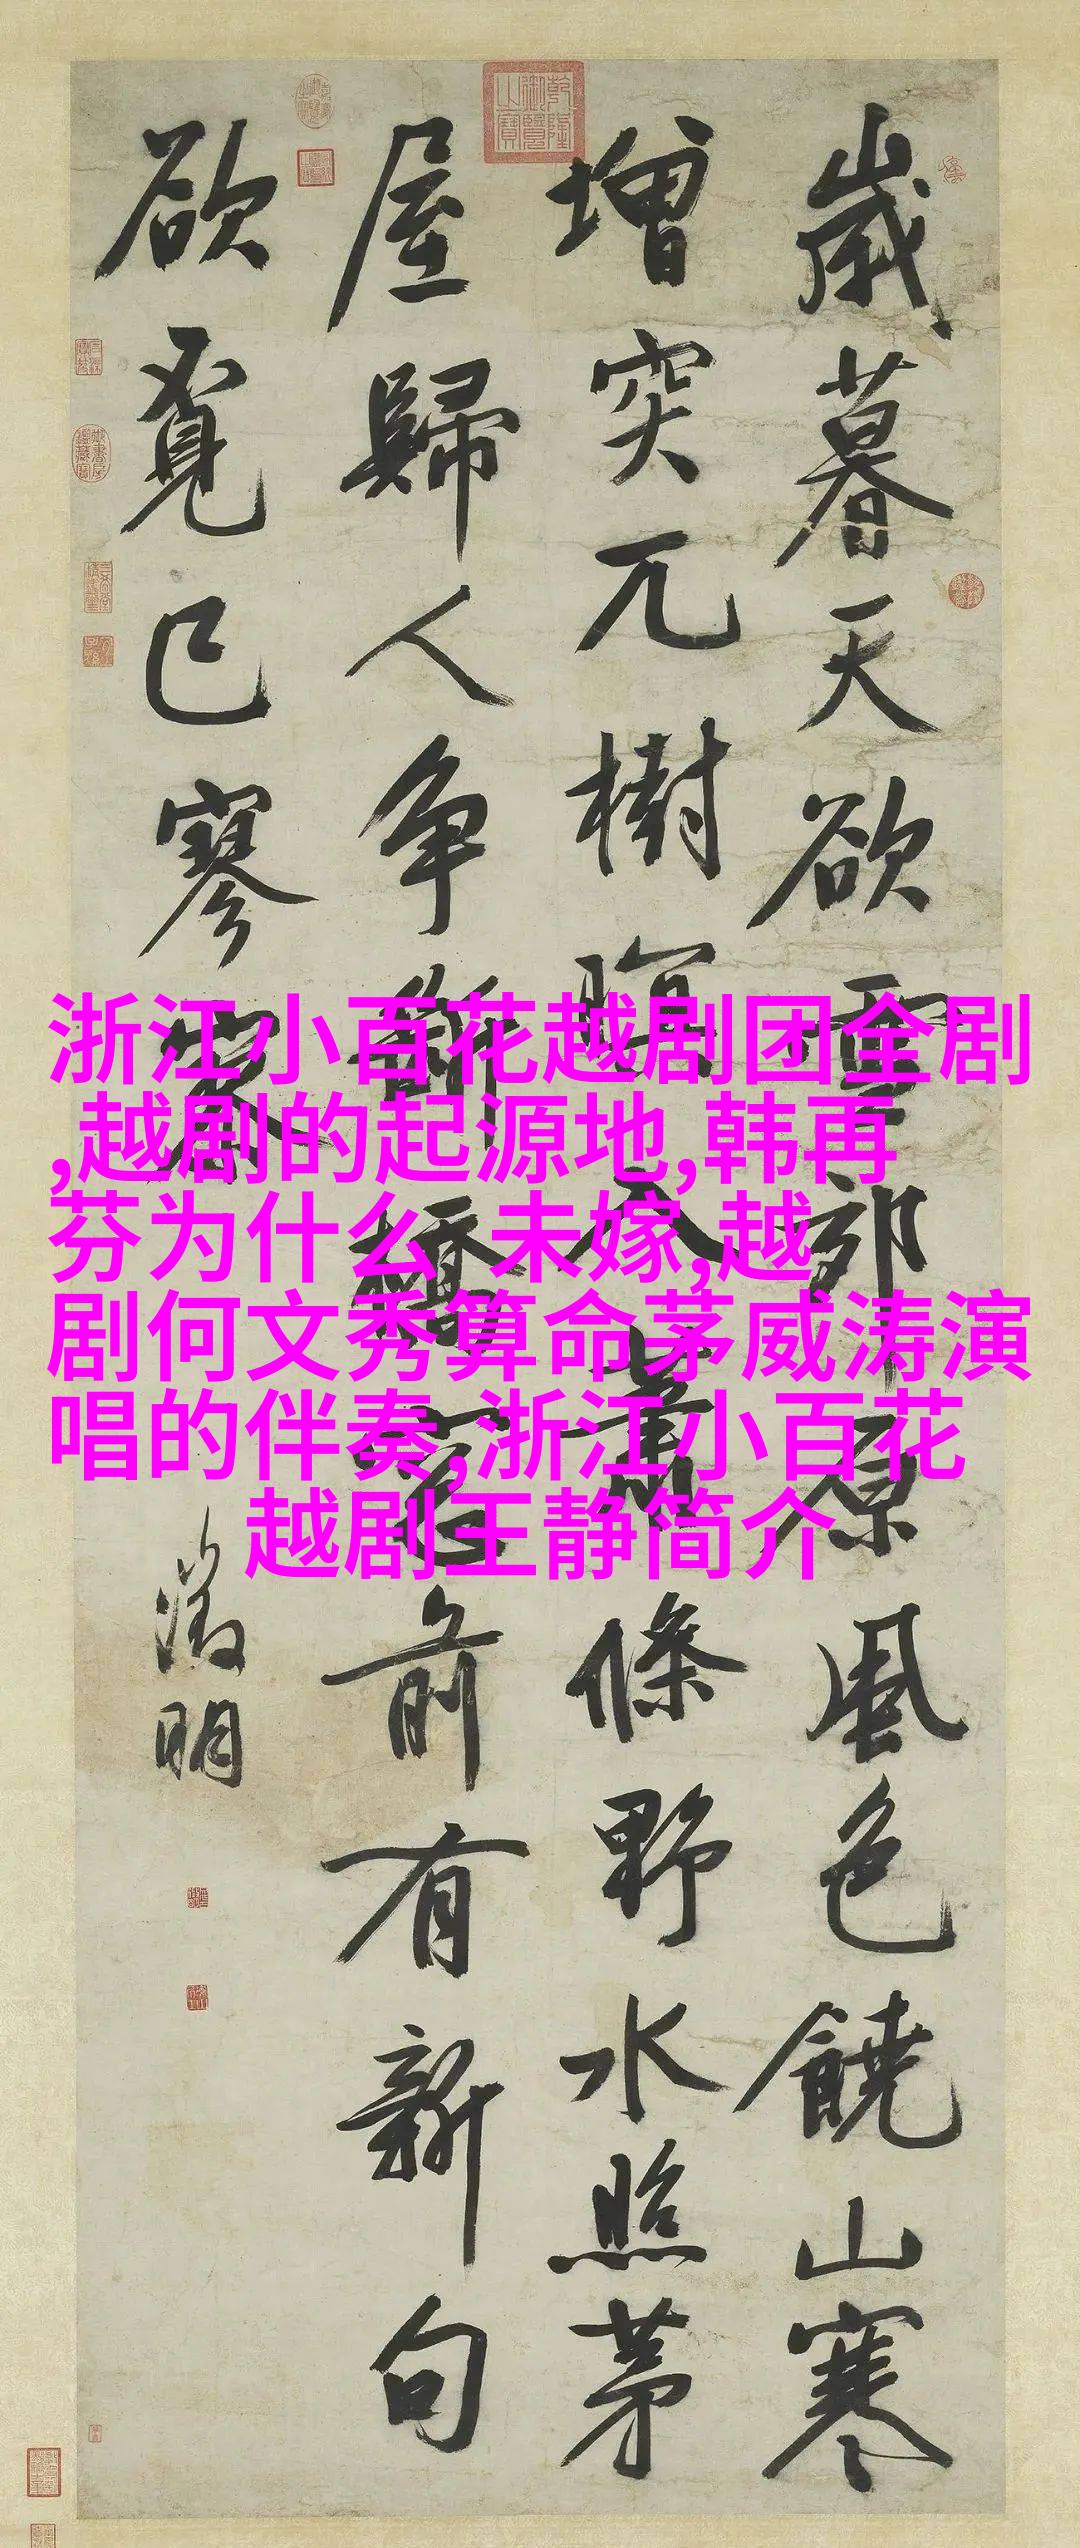 歲暮天欲雪郊原風色饒山寒
增突兀樹暝入蕭條野水照茅
屋歸人爭斷橋窓前有新句
欲覓已寥寥
徵明
乾隆御覽之寶
浙江小百花越剧团全剧
,越剧的起源地,韩再
芬为什么 未嫁,越
剧何文秀算命茅威涛演
唱的伴奏,浙江小百花
越剧王静简介